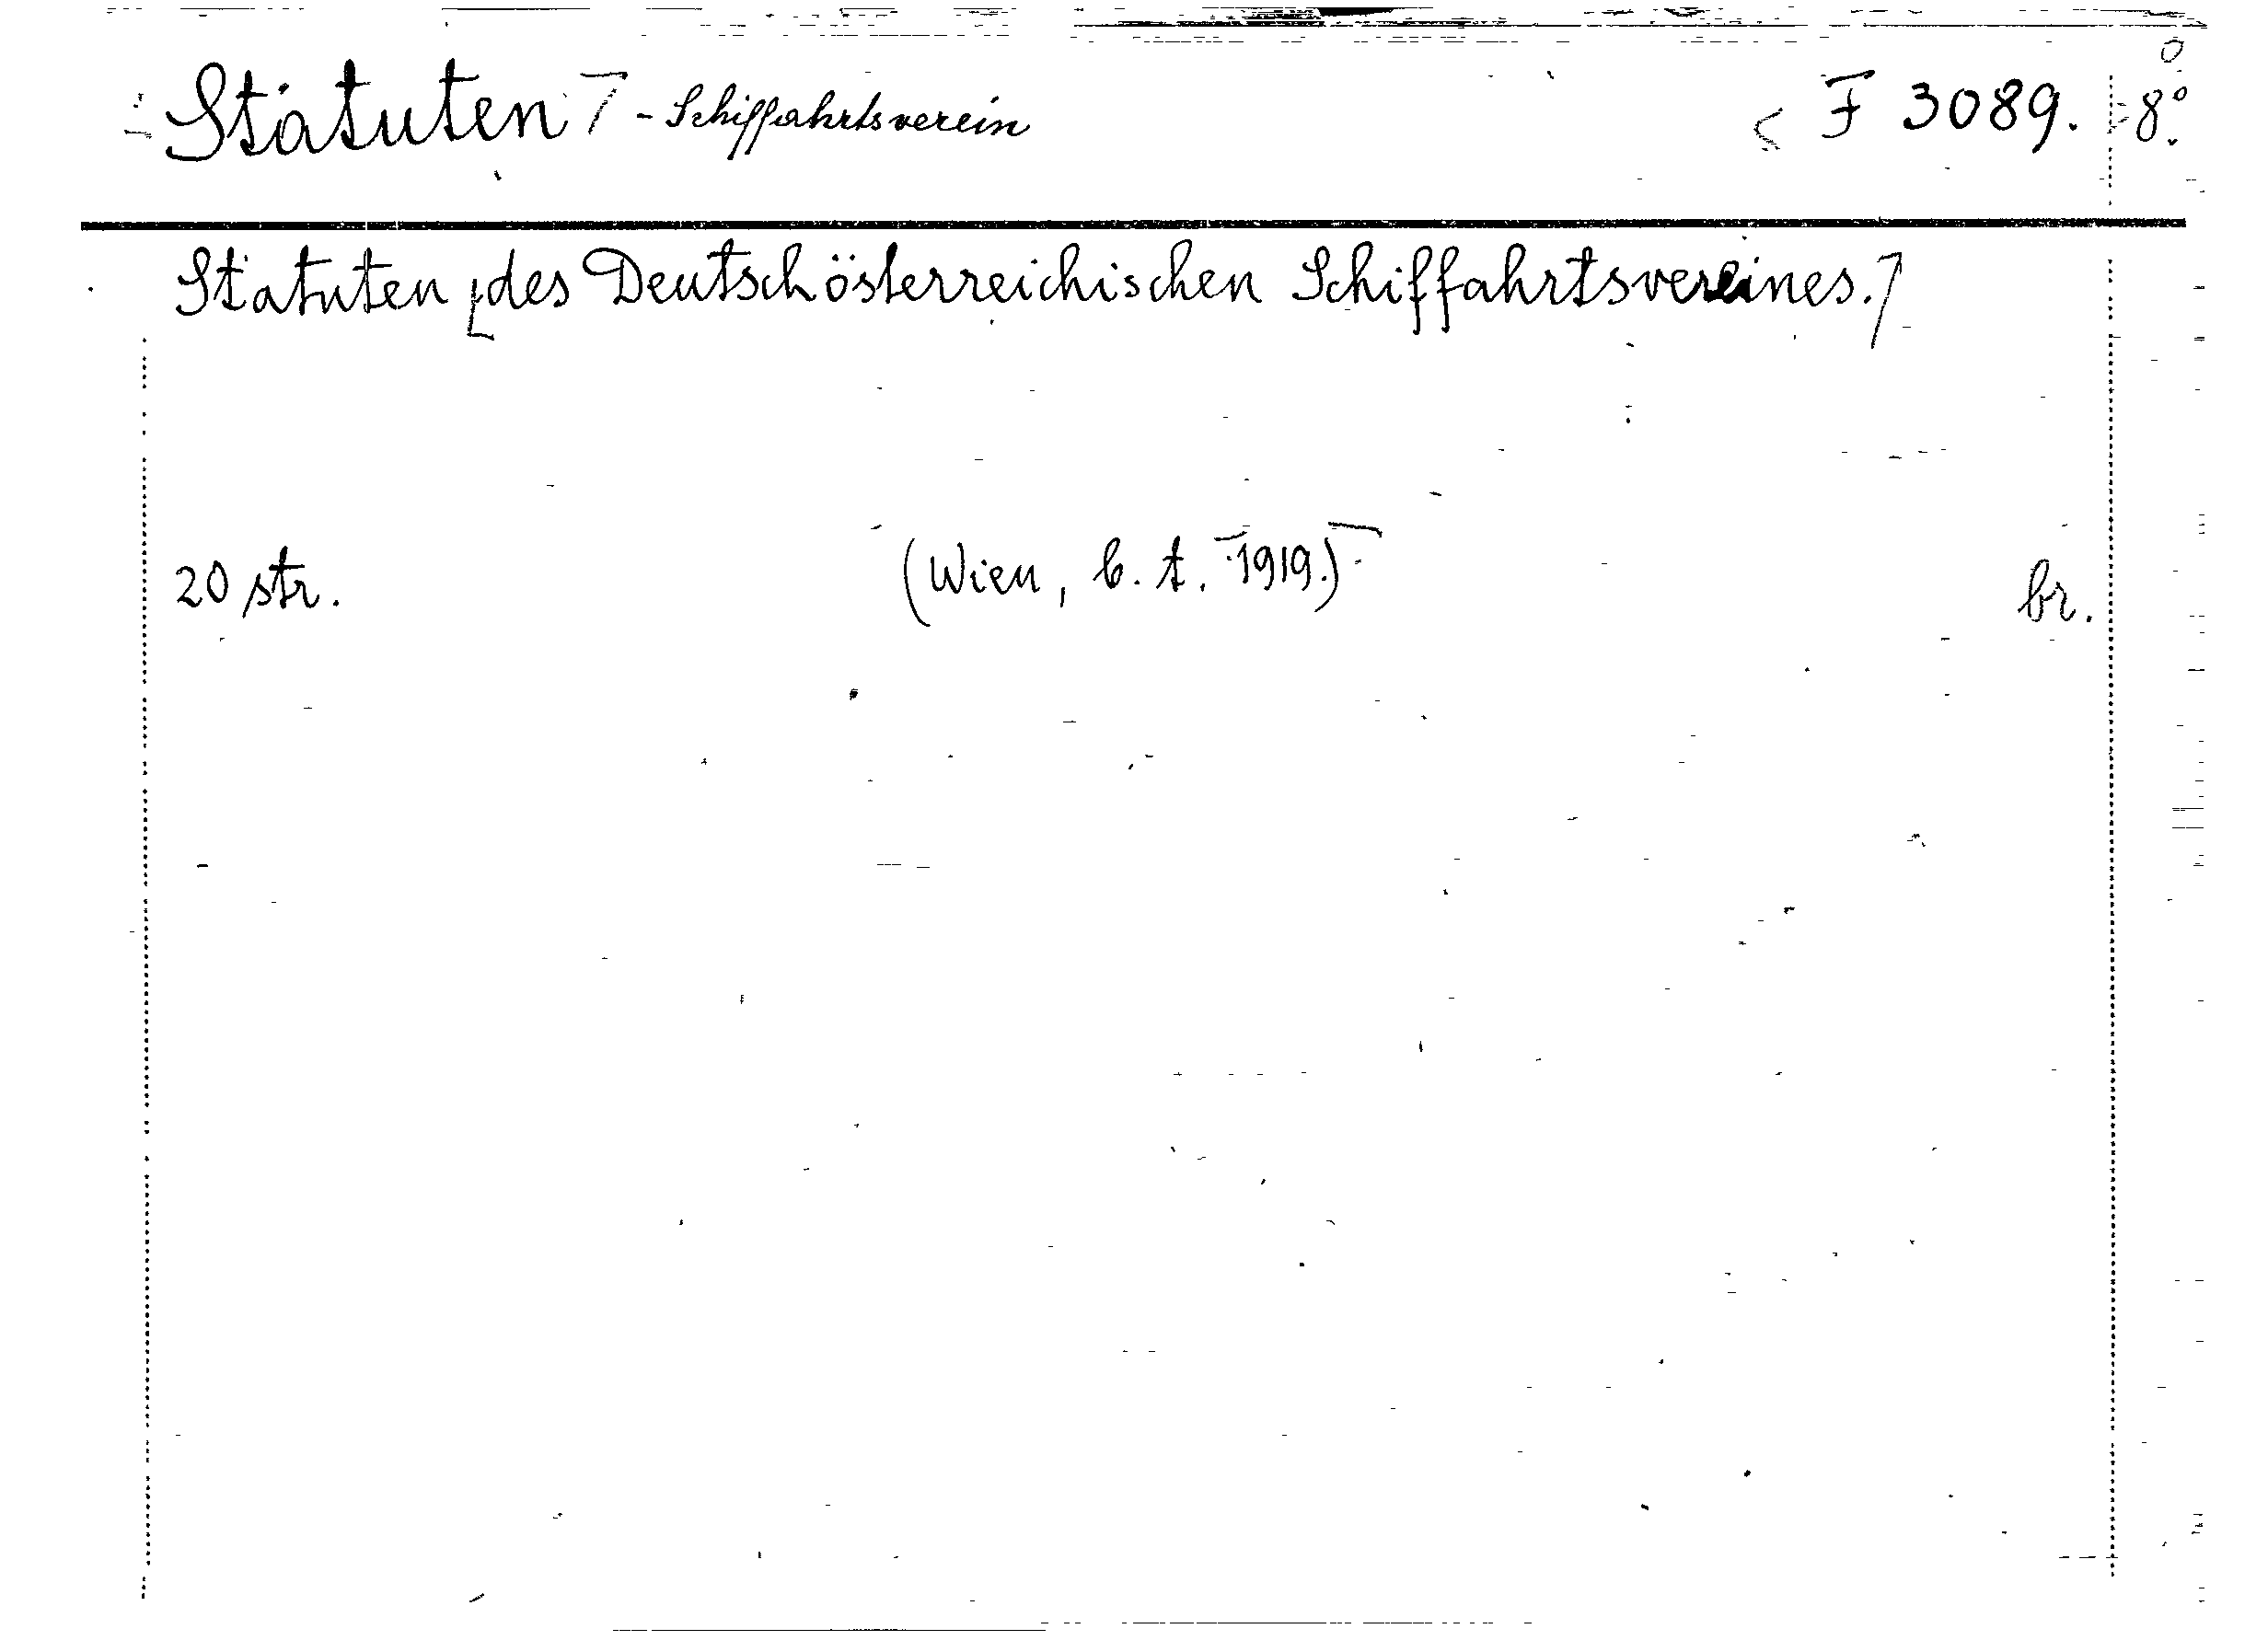 Statuten - Schiffahrtsverein F 3089. 8°.
Statuten [des Deutschösterreichischen Schiffahrtsvereines.]
20 str. (Wien, b. t. 1919.) br.